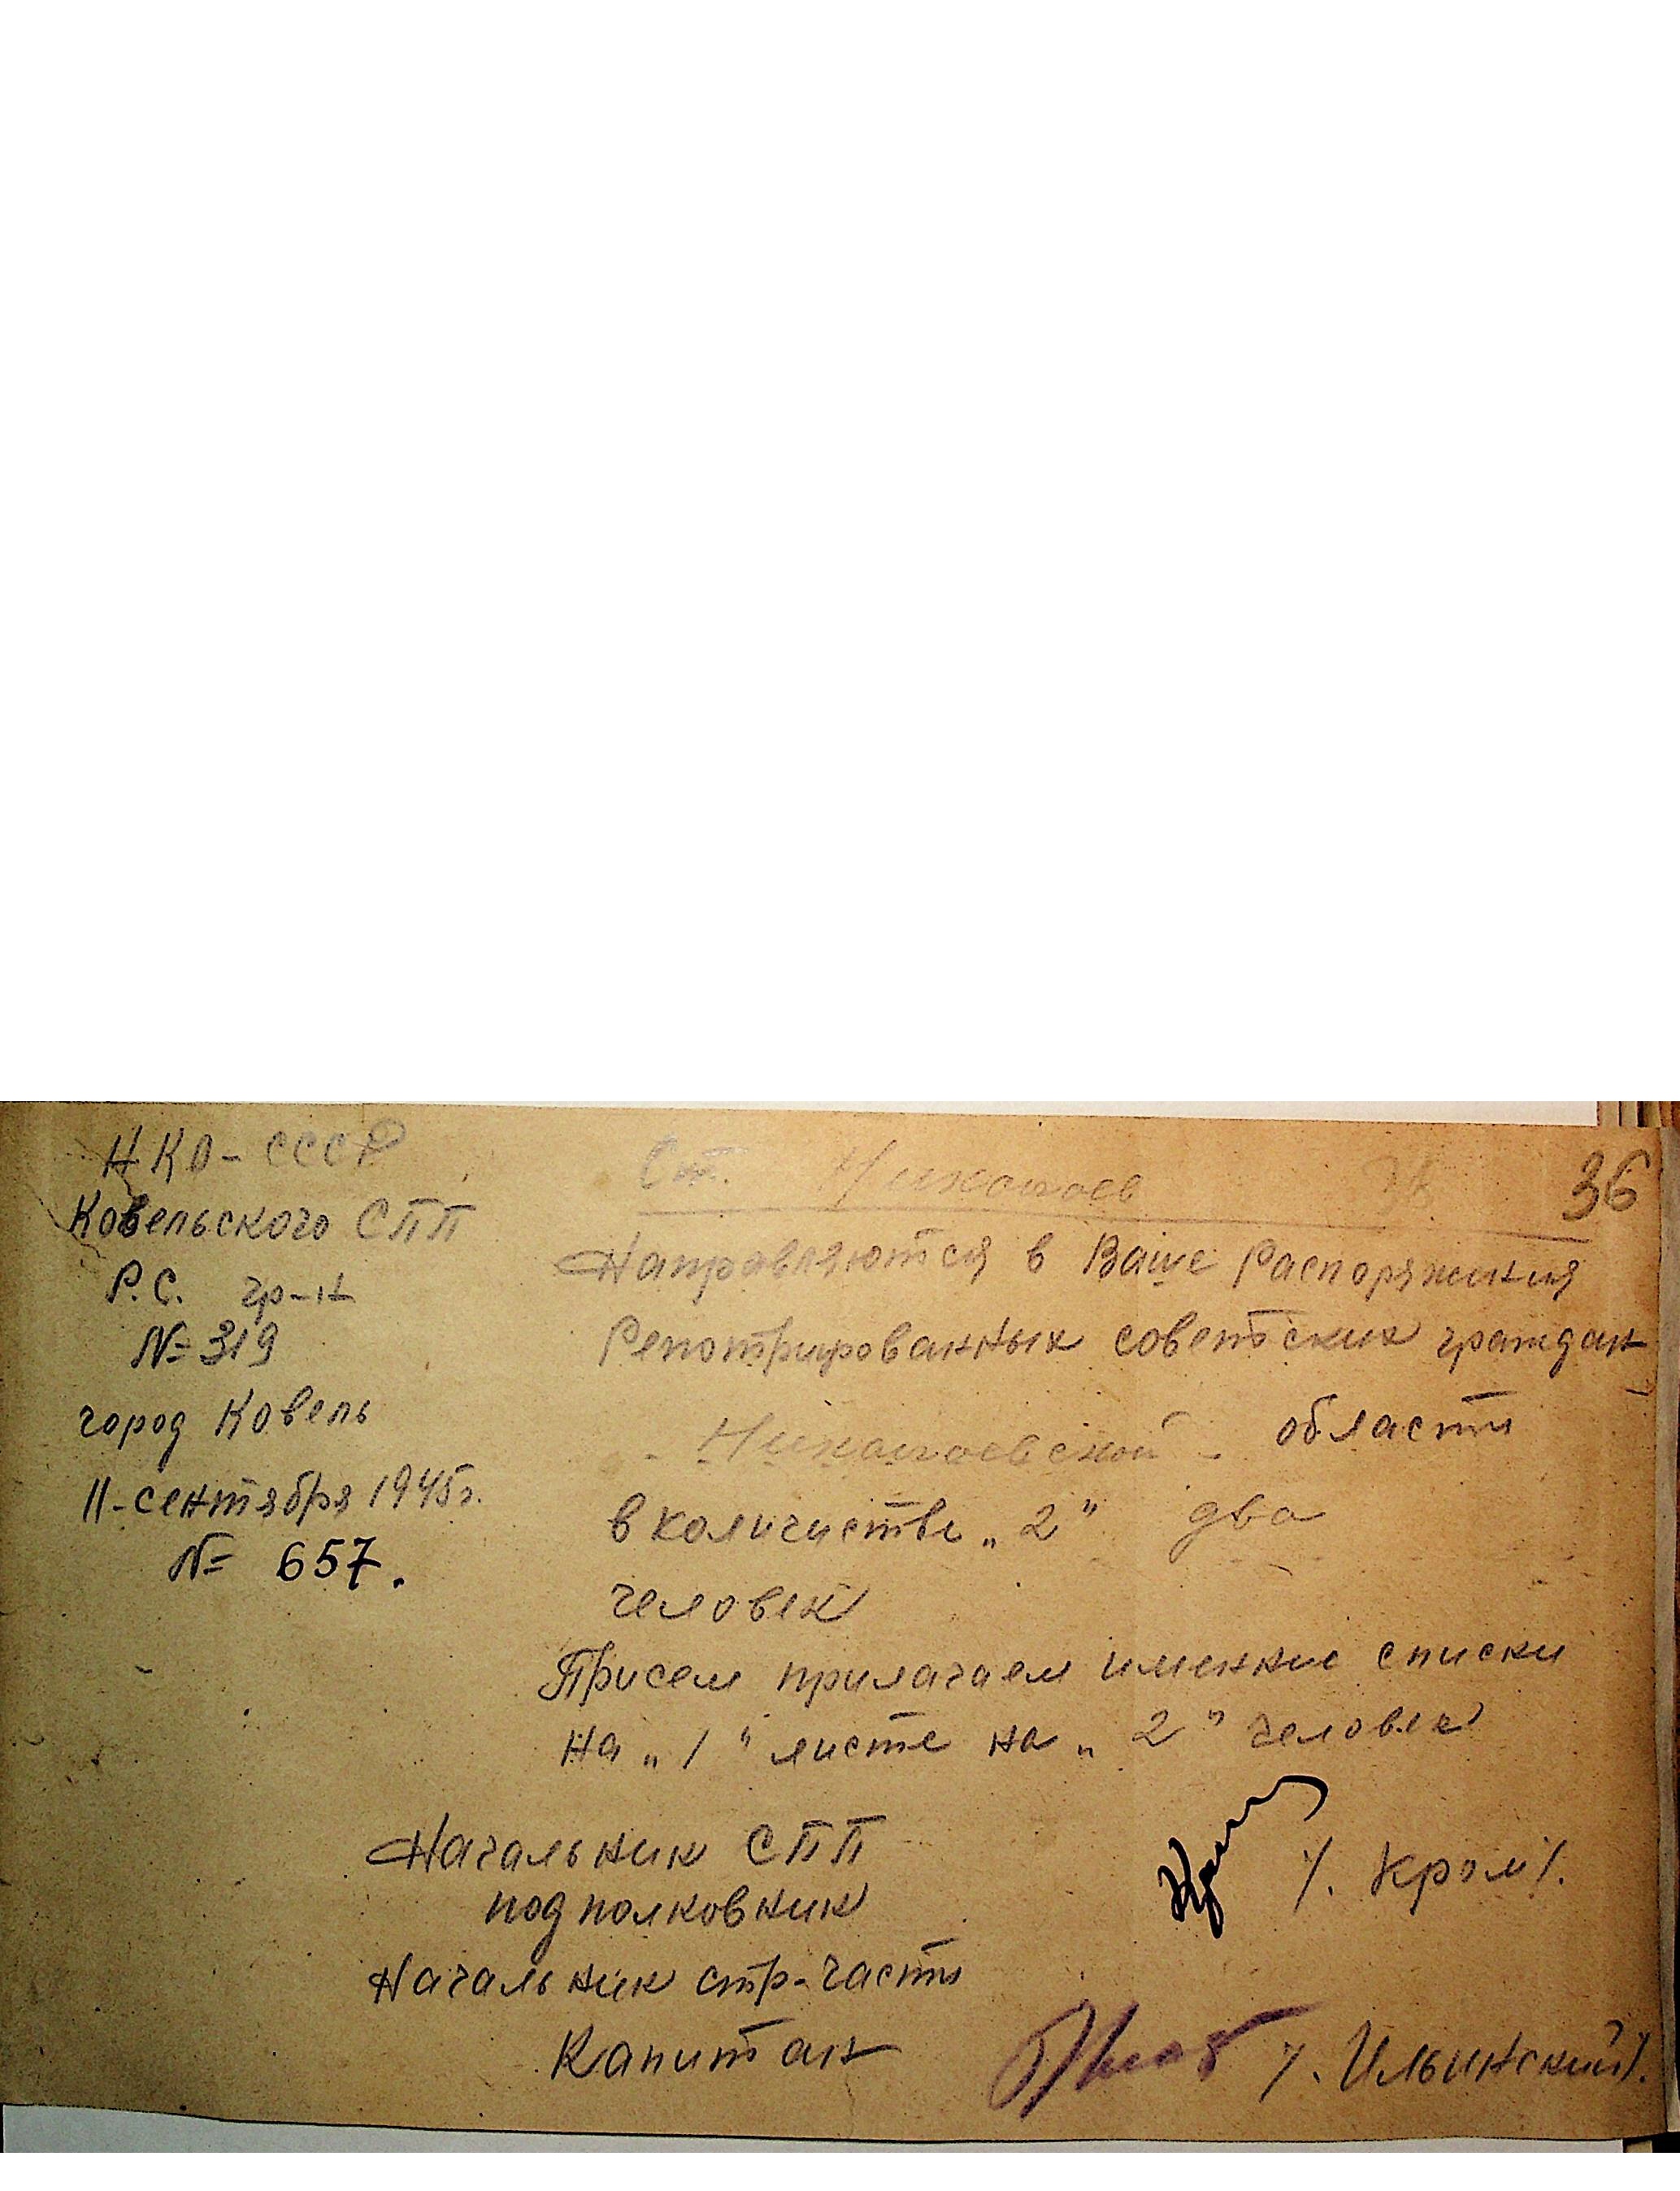 НКО-СССР
Ковельского СПП
Р.С. гр-н
№ 319
город Ковель
11-сентября 1945г.
№ 657.
36
Ст. Николаев
Направляются в Ваше Распоряжения
Репотрированных советских граждан
- Николаевской - области
в количистве „2” два
человек
Присем прилагаем именние списки
на „1“ листе на „2” человек
Начальник СПП
подполковник
/. Кром/.
Начальник стр-части
Капитан
/. Ильинский/.